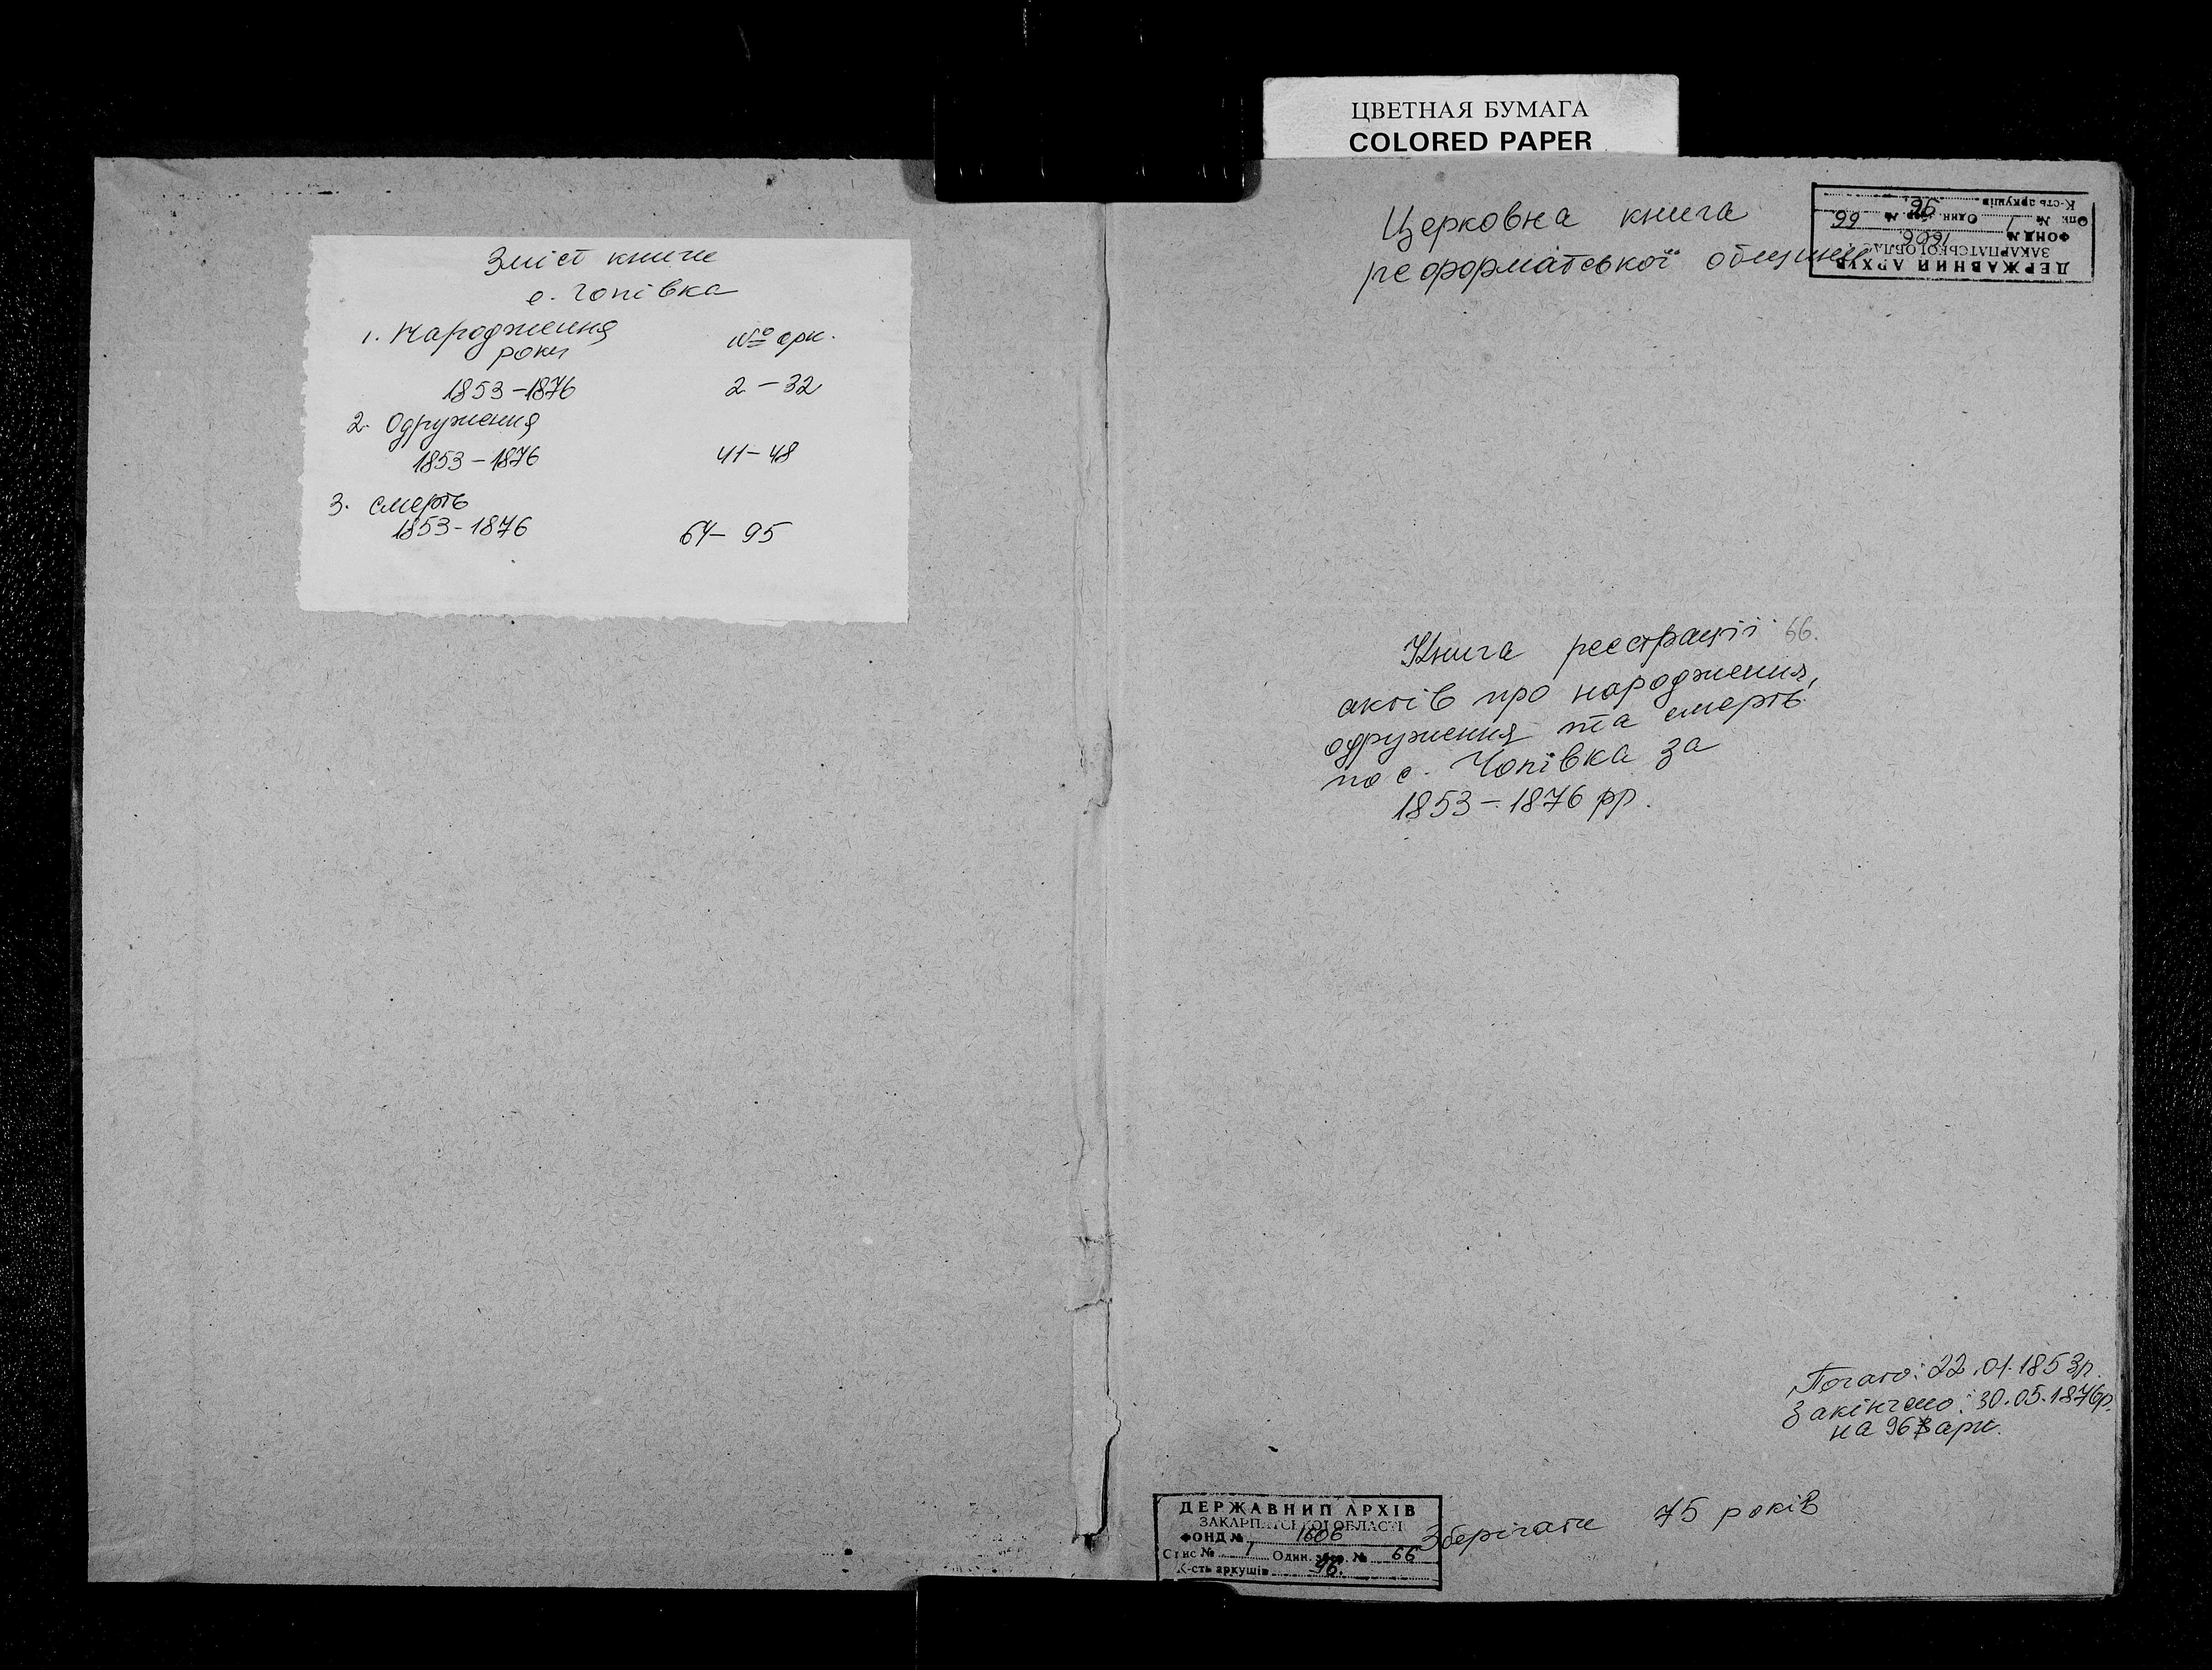 ЦВЕТНАЯ БУМАГА
COLORED PAPER
Зміст книги
с. Чопівка
1. Народження
роки
№ арк.
1853-1876 2-32
2. Одруження
1853-1876 41-48
3. смерть
1853-1876 64-95
Церковна книга
реформатської общини
ДЕРЖАВНИЙ АРХІВ
ЗАКАРПАТСЬКОЇ ОБЛАС
ФОНД № 1606
Оп. № 1 Один. збер. № 66
К-сть аркушів 96
Книга реєстрації 66.
актів про народження,
одруження та смерть
по с. Чопівка за
1853-1876 рр.
Почато: 22.01.1853р.
Закінчено: 30.05.1876р.
на 96 арк.
Зберігати 75 років
ДЕРЖАВНИЙ АРХІВ
ЗАКАРПАТСЬКОЇ ОБЛАСТІ
ФОНД № 1606
Опис № 1 Один. збер. № 66
К-сть аркушів 96.